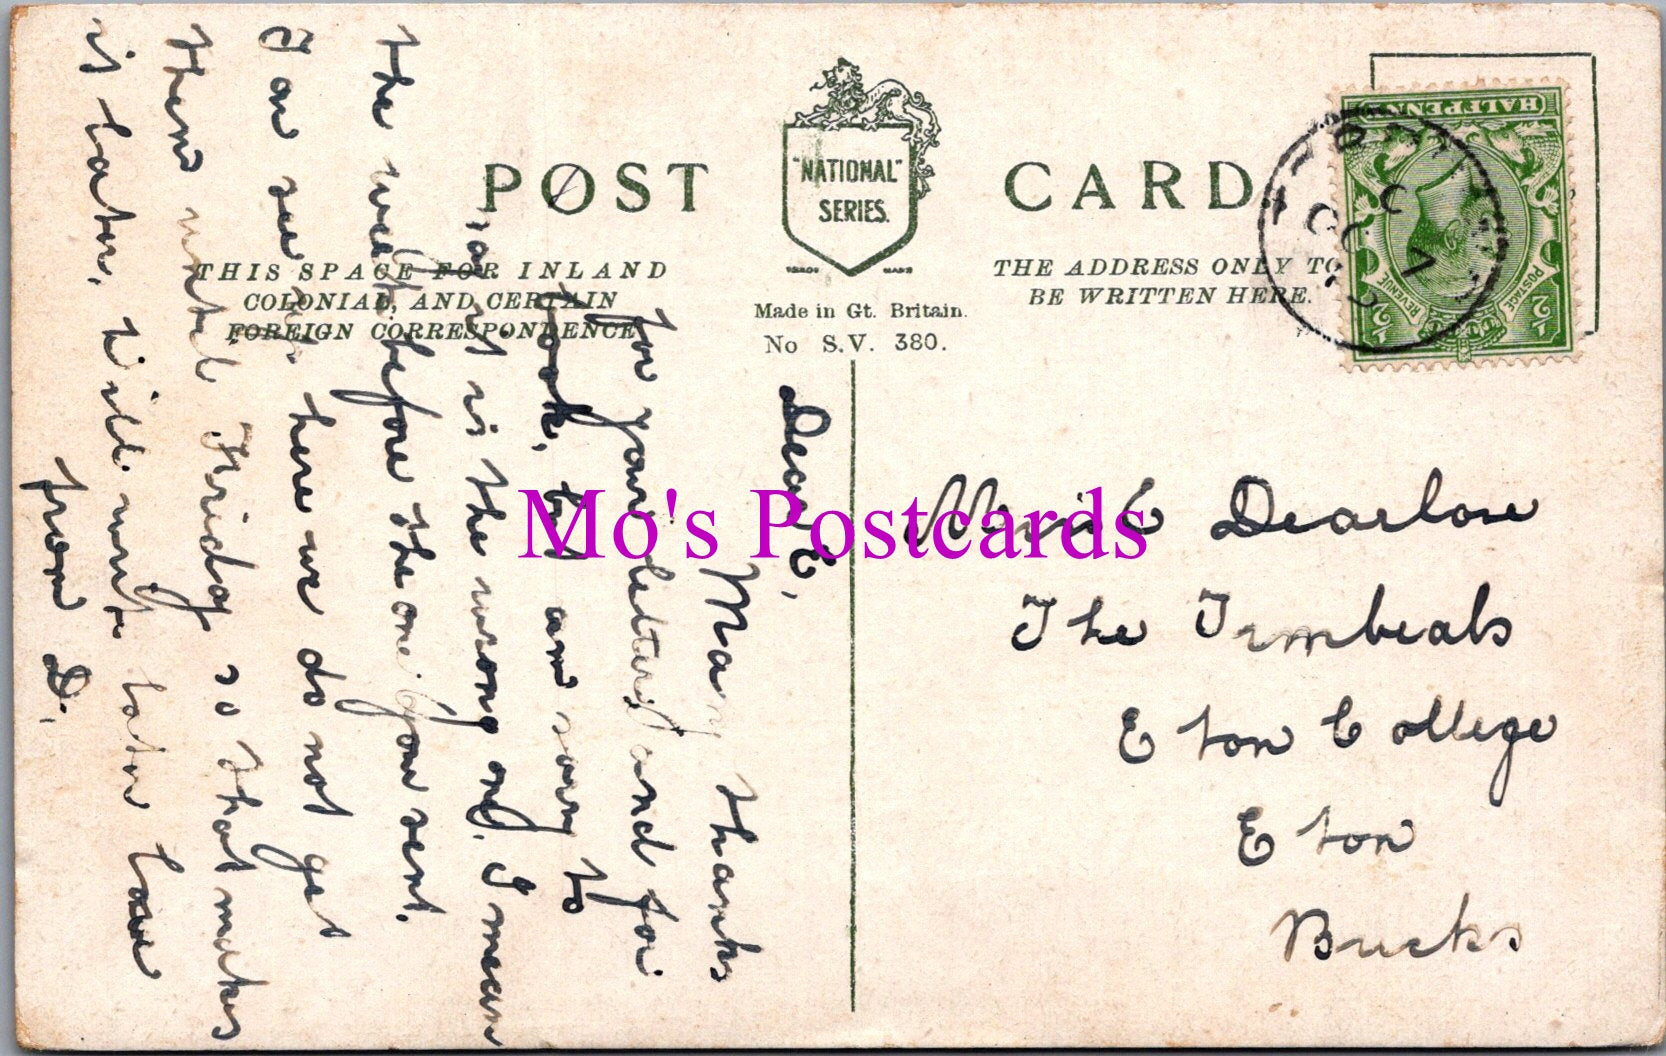 POST CARD
"NATIONAL"
SERIES.
TRADE MARK
THIS SPACE FOR INLAND
COLONIAL, AND CERTAIN
FOREIGN CORRESPONDENCE
THE ADDRESS ONLY TO
BE WRITTEN HERE.
Made in Gt. Britain.
No S.V. 380.
HALFPENNY
POSTAGE
REVENUE
½
½
OC 7
Dear E,
Many thanks
for your letter, and for
book, but am sorry to
say it is the wrong one, I mean
the week before the one you sent.
You see up here we do not get
them until Friday so that makes
is later, will write later love
from D.
Miss E Dearlove
The Timbrals
Eton College
Eton
Bucks
Mo's Postcards